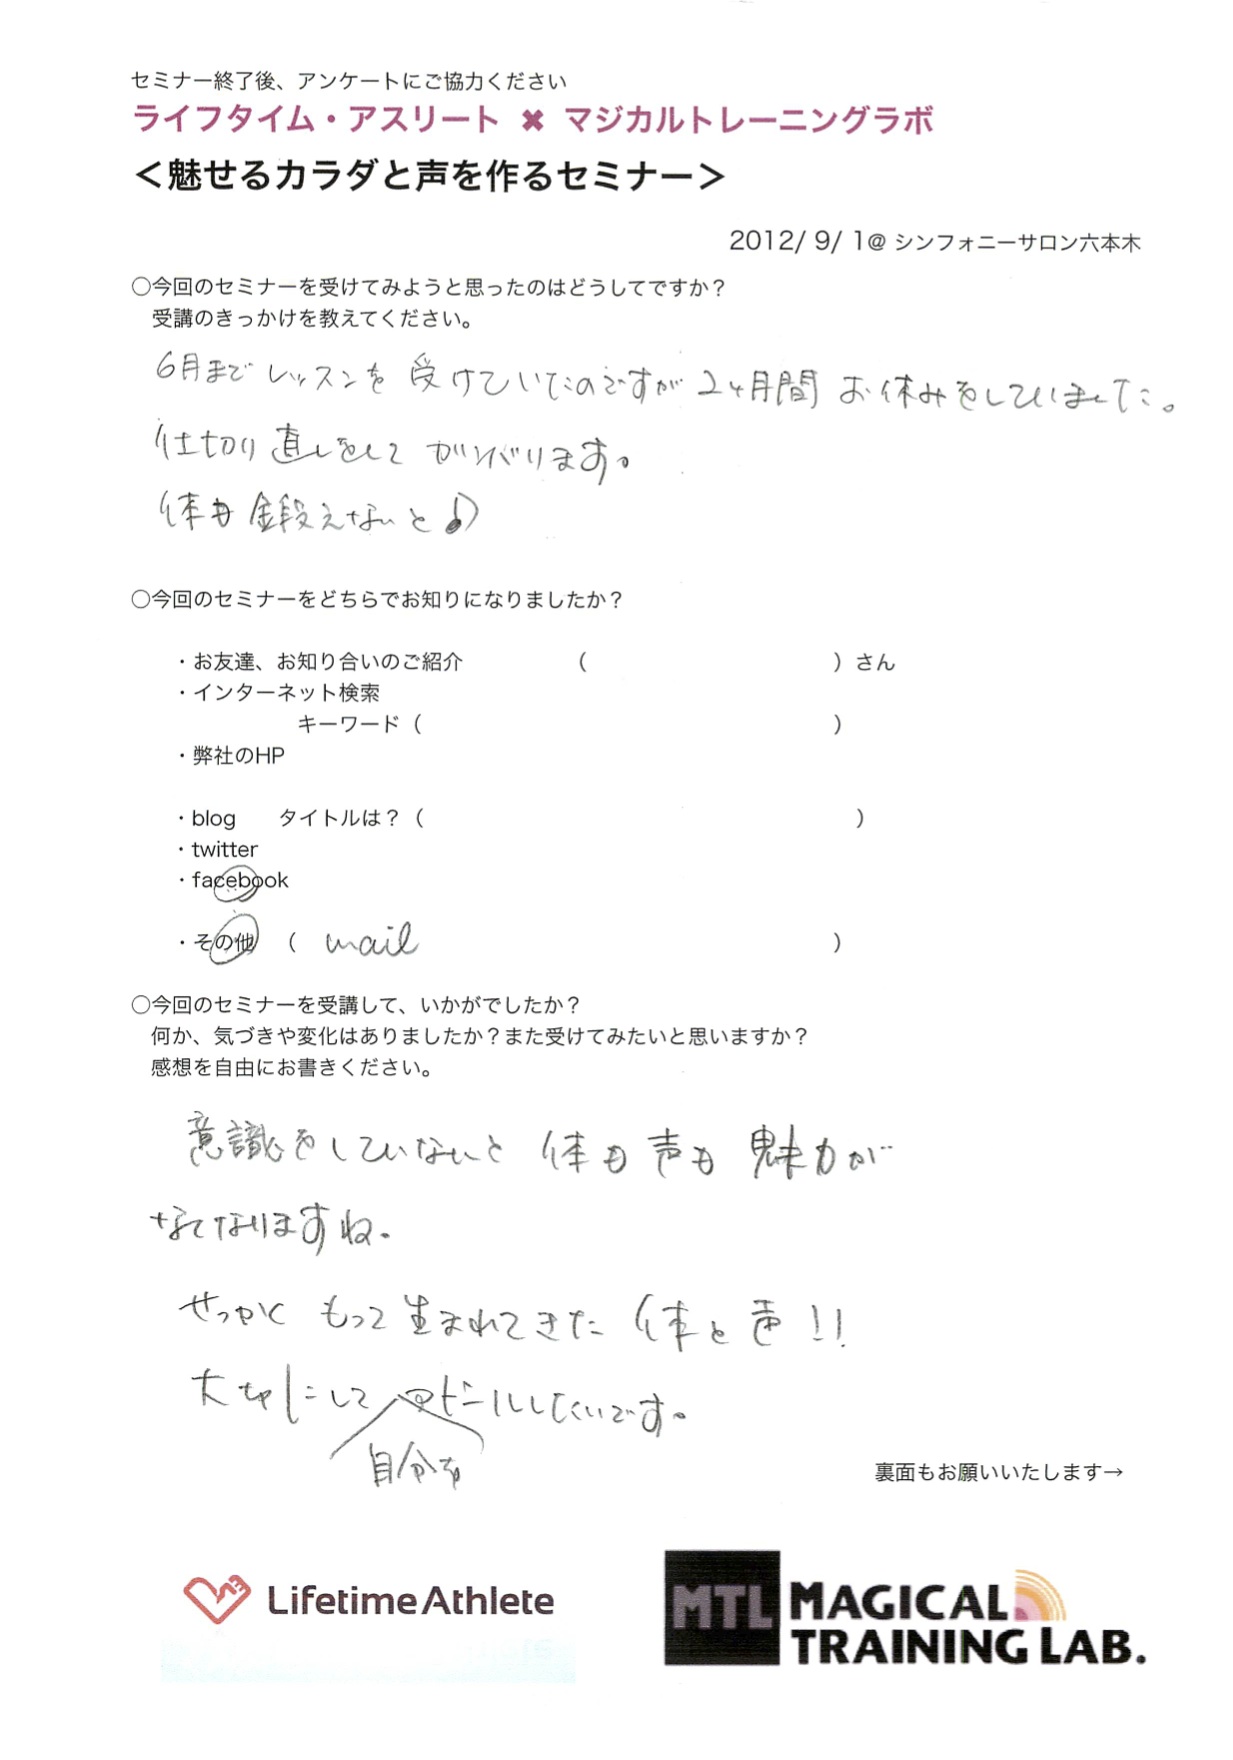 セミナー終了後、アンケートにご協力ください
ライフタイム・アスリート ✖ マジカルトレーニングラボ
＜魅せるカラダと声を作るセミナー＞
2012/ 9/ 1@ シンフォニーサロン六本木
○今回のセミナーを受けてみようと思ったのはどうしてですか？
受講のきっかけを教えてください。
6月までレッスンを受けていたのですが2ヶ月間お休みをしていました。
仕切り直しをしてガンバります。
体も鍛えないと♪
○今回のセミナーをどちらでお知りになりましたか？
・お友達、お知り合いのご紹介 （ ）さん
・インターネット検索
キーワード（ ）
・弊社のHP
・blog タイトルは？（ ）
・twitter
・facebook
・その他 （ mail ）
○今回のセミナーを受講して、いかがでしたか？
何か、気づきや変化はありましたか？また受けてみたいと思いますか？
感想を自由にお書きください。
意識をしていないと 体も声も魅力が
なくなりますね。
せっかく もって生まれてきた 体と声!!
大切にして 自分を ビルドしたいです。
裏面もお願いいたします→
Lifetime Athlete
MTL MAGICAL
TRAINING LAB.